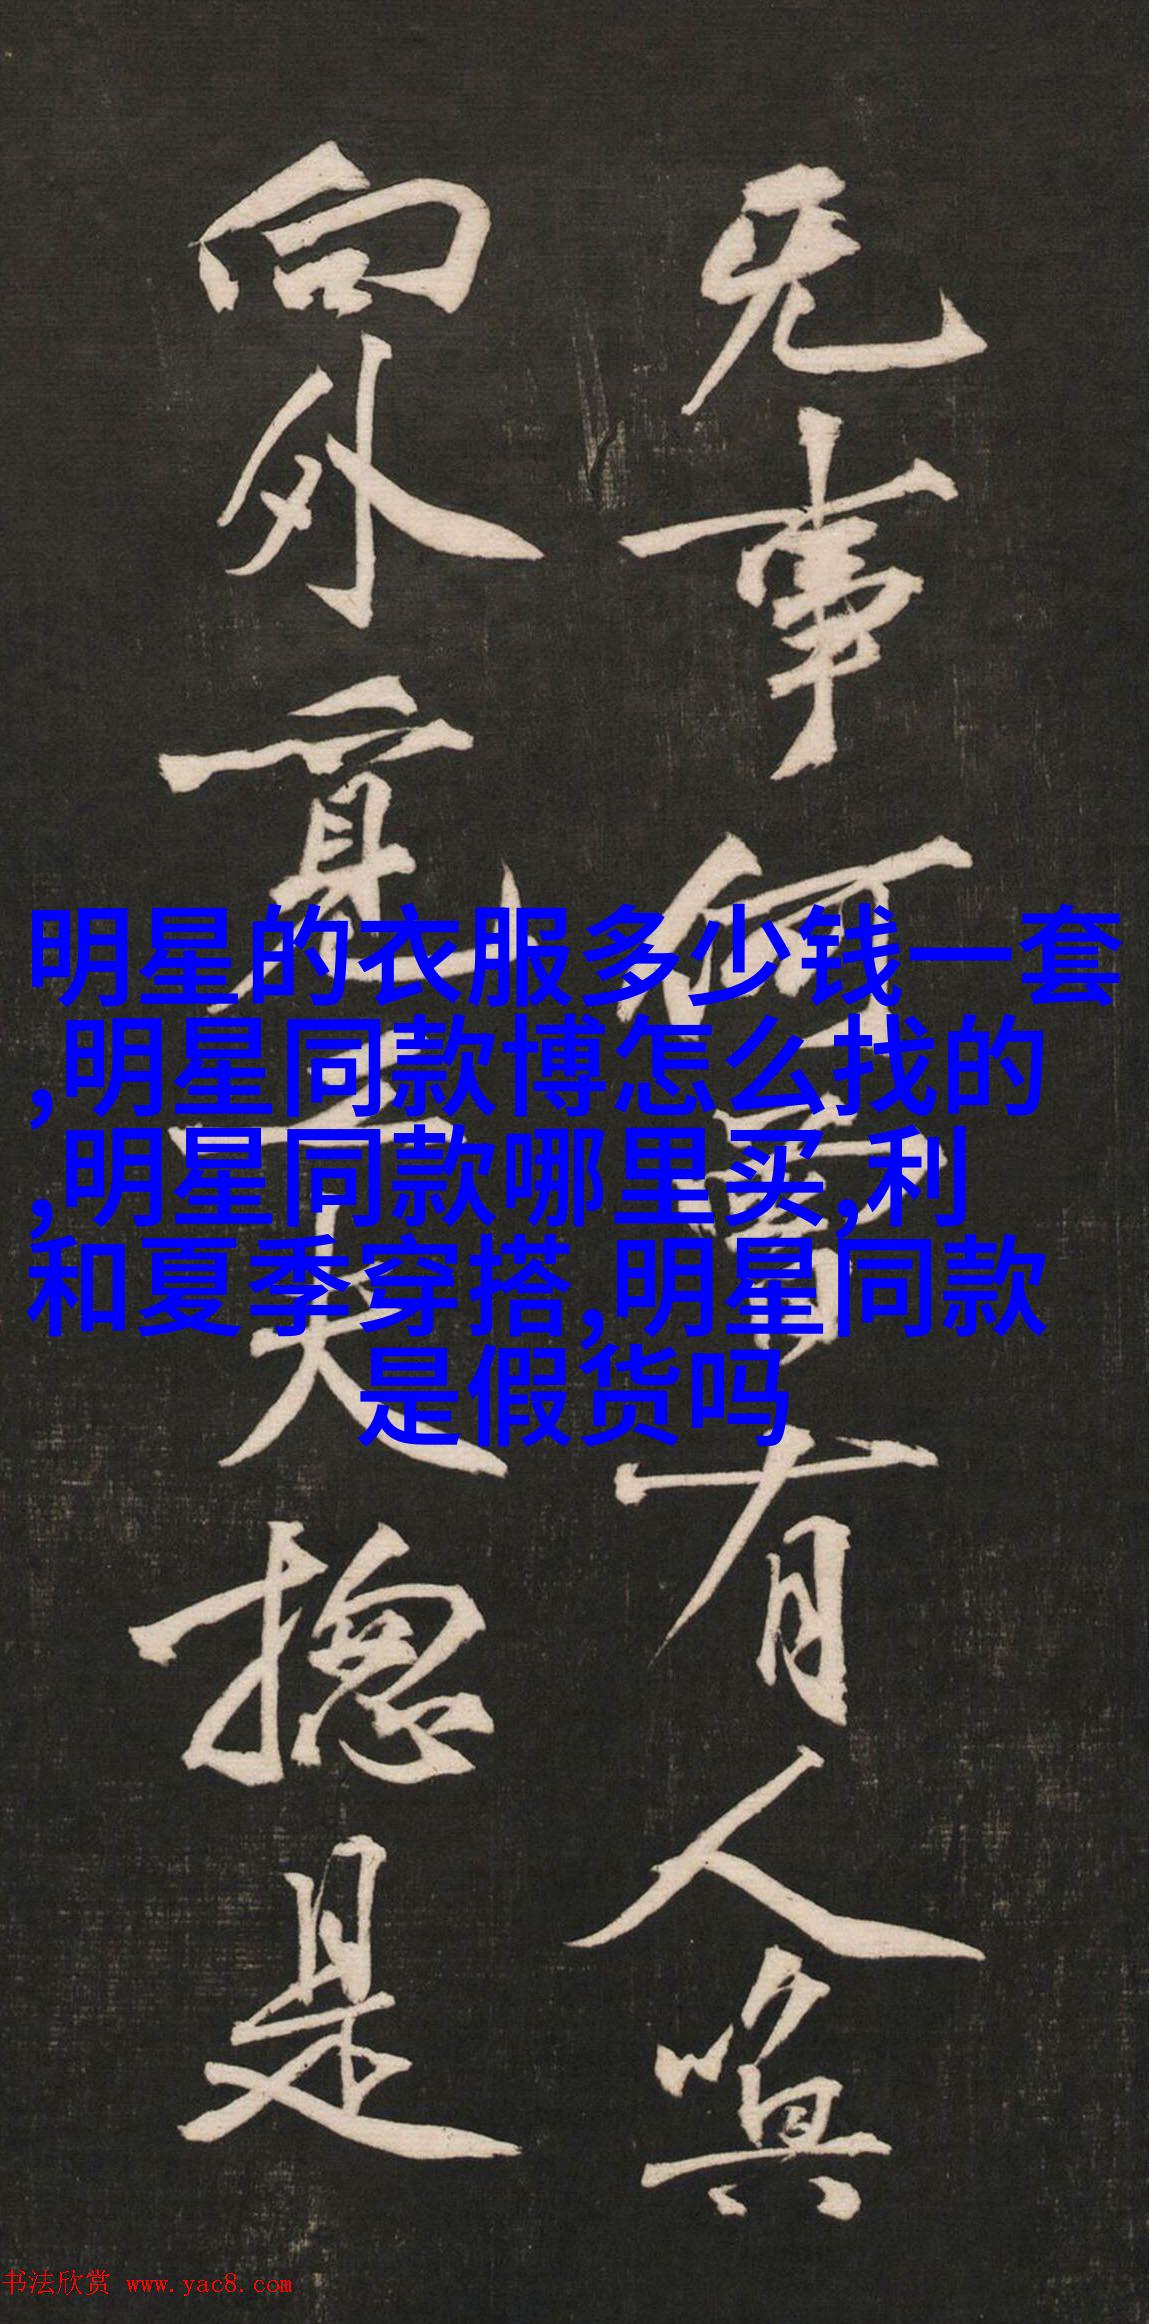 无事何須有人喚
向外寛工夫揔是
明星的衣服多少钱一套
,明星同款博怎么找的
,明星同款哪里买,利
和夏季穿搭,明星同款
是假货吗
书法欣赏 www.yac8.com